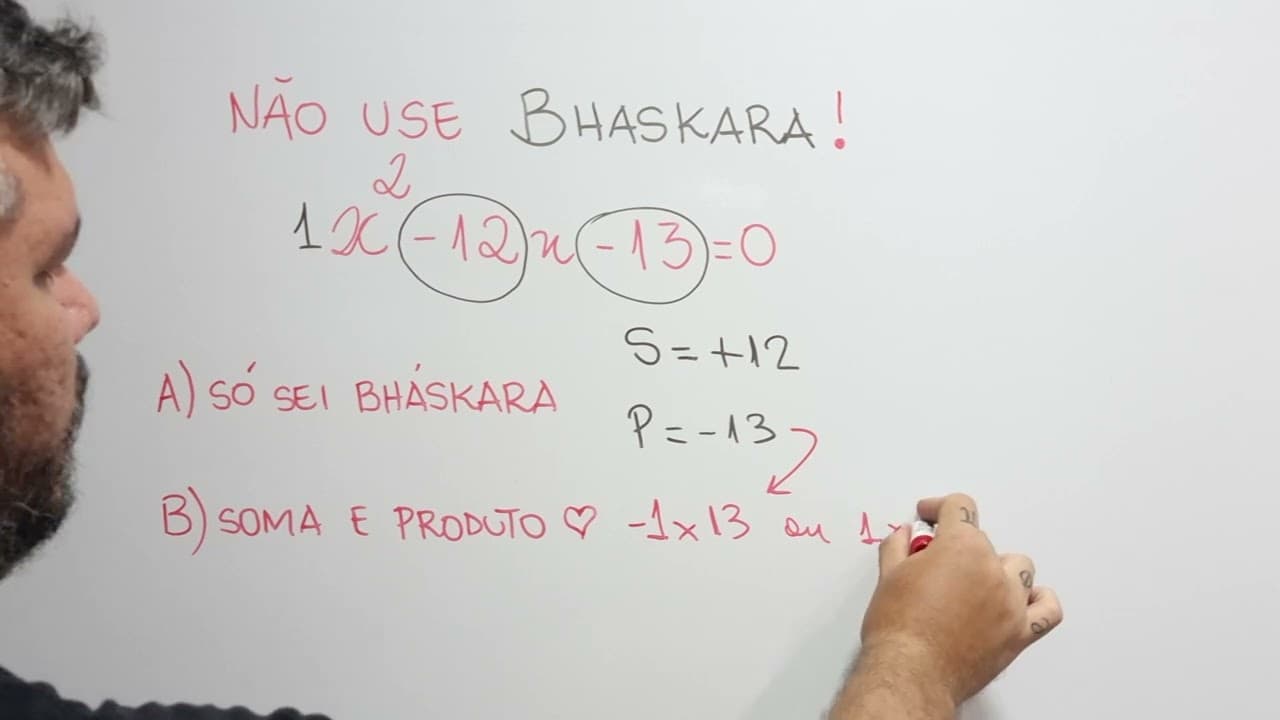 NÃO USE BHASKARA!
1x²-12x-13=0
S=+12
A) SÓ SEI BHÁSKARA
P=-13
B) SOMA E PRODUTO ♡ -1x13 ou 1x